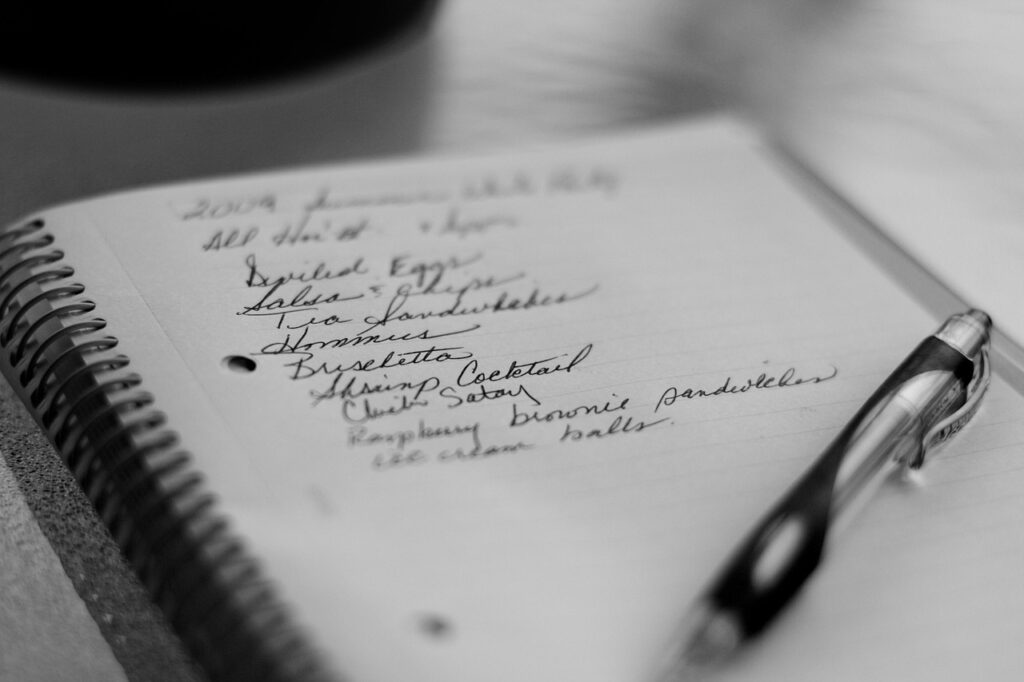 2009 Summer White Party
All Hor'd
Deviled Eggs
Salsa & Chips
Tea Sandwiches
Hommus
Bruschetta
Shrimp Cocktail
Satay
Raspberry brownie sandwiches
ice cream balls.